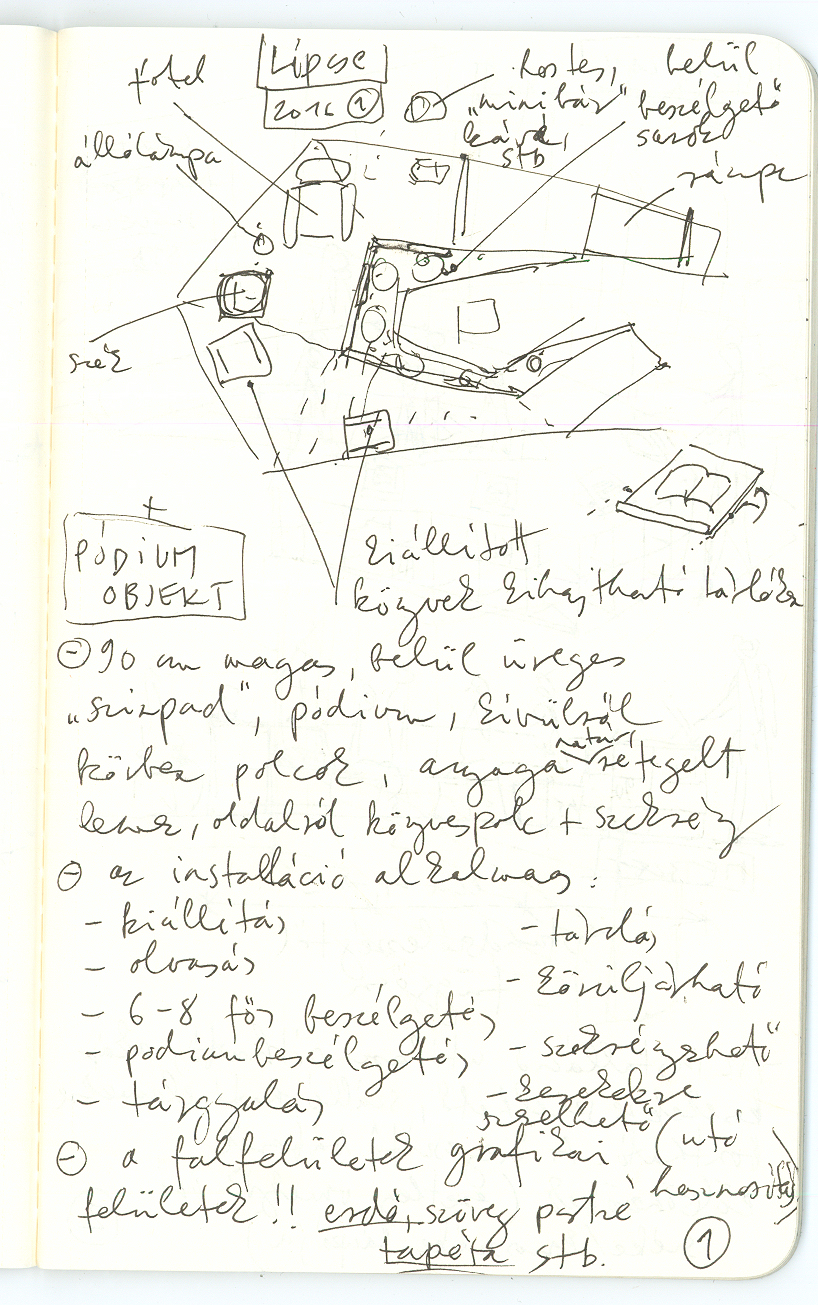 fotel
Lipcse
2016 ①
hostes,
"minibár"
kávé,
stb
belül
beszélgető
sarok
állólámpa
rámpa
szék
+
PÓDIUM
OBJEKT
kiállított
könyvek kihajtható tárlók
90 cm magas, belül üreges
„színpad", pódium, kívülről
körben polcok, anyaga natúr rétegelt
lemez, oldalról könyvespolc + szekrény
az installáció alkalmas:
- kiállítás
- olvasás
- 6-8 fős beszélgetés
- pódiumbeszélgetés
- tárgyalás
- tárolás
- körüljárható
- szekrényezhető
- kerekekre
szerelhető
a falfelületek grafikai
(utó
hasznosítás)
felületek!! erdő, szöveg
tapéta stb.
①